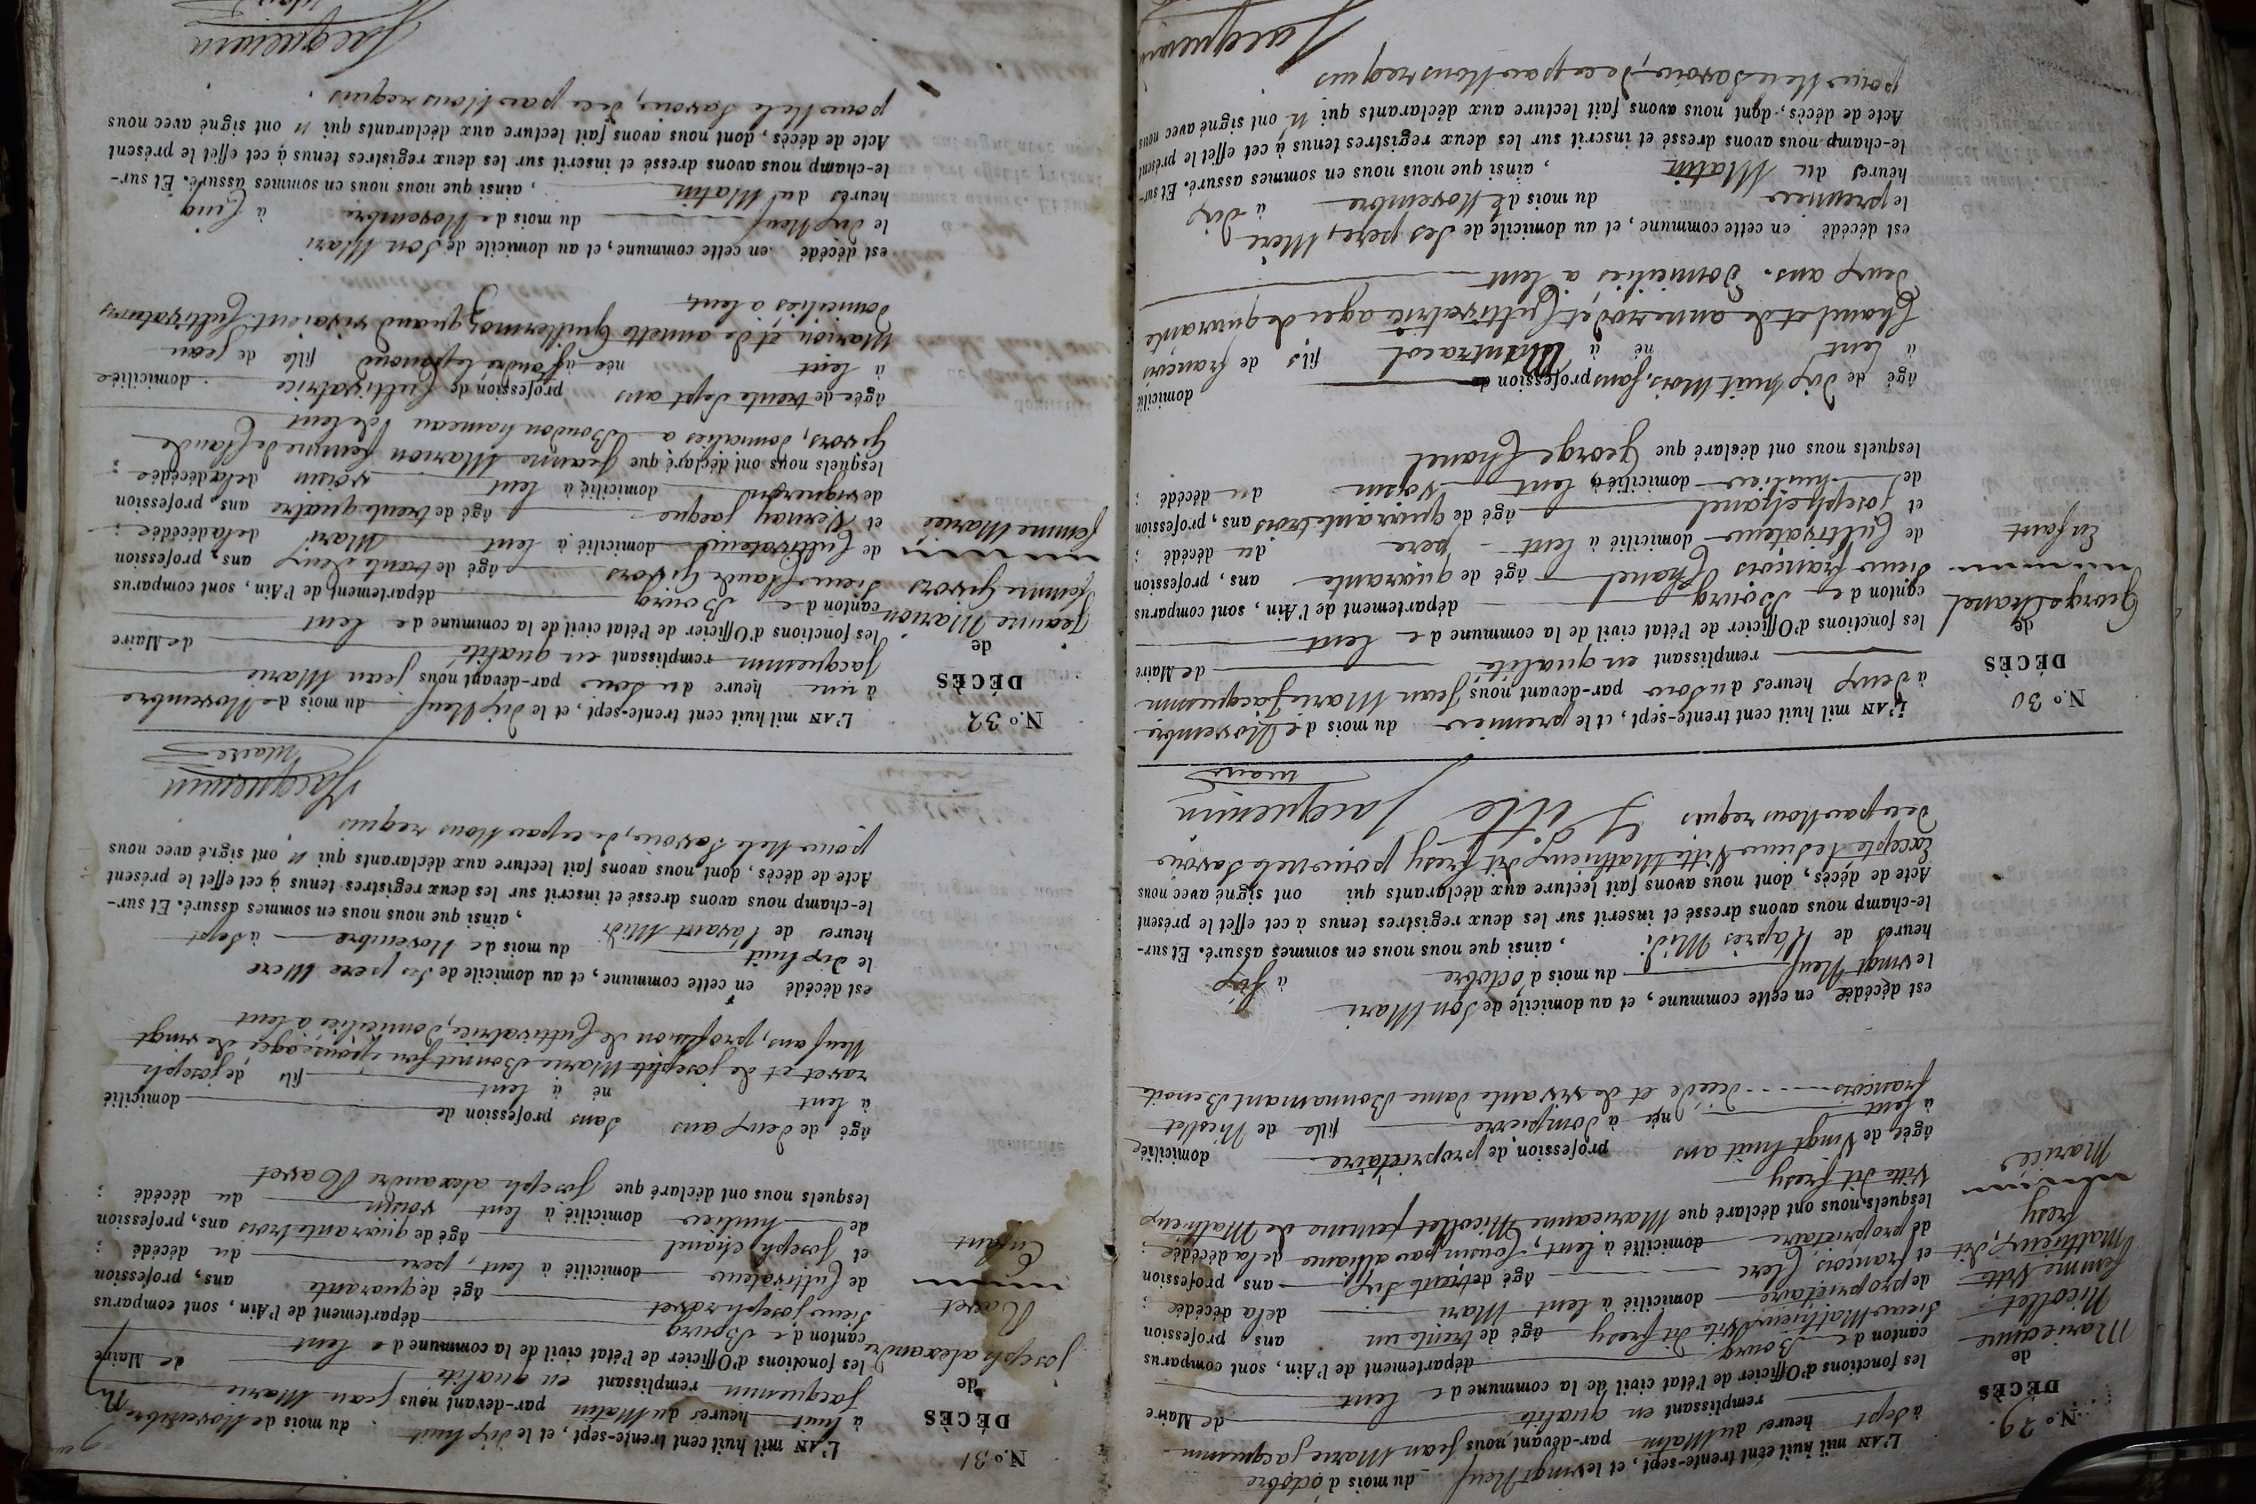 N.° 29.
DÉCÈS
de
Marieanne
Nicollet
femme Vitte
Mathieux, dit
fresy
Mariée
L'AN mil huit cent trente-sept, et le vingt Neuf du mois d'octobre
à sept heures du Matin par-devant nous Jean Marie Jacquemin
remplissant en qualité de Maire
les fonctions d'Officier de l'état civil de la commune de lent
canton de Bourg département de l'Ain, sont comparus
Sieur Mathieux Vitte dit fresy âgé de trente un ans, profession
de propriétaire domicilié à lent Mari de la décédée ;
et francois Clerc âgé de trente six ans, profession
de propriétaire domicilié à lent, Cousin par alliance de la décédée ;
lesquels nous ont déclaré que Marieanne Nicollet femme de Mathieux
Vitte dit fresy
âgée de Vingt huit ans profession de propriétaire domiciliée
à lent née à Dompierre fille de Nicollet
francois décédé et de vivante dame Bonnamant Benoite
est décédée en cette commune, et au domicile de Son Mari
le vingt Neuf du mois d'octobre à Six
heures de l'après Midi , ainsi que nous nous en sommes assuré. Et sur-
le-champ nous avons dressé et inscrit sur les deux registres tenus à cet effet le présent
Acte de décès, dont nous avons fait lecture aux déclarants qui ont signé avec nous
Excepté le Sieur Vitte Mathieux dit fresy pour ne le Savoir
de ce par Nous requis
Jacquemin
maire
N.° 30
DÉCÈS
de
George Chanel
Enfant
L'AN mil huit cent trente-sept, et le premier du mois de Novembre
à deux heures du Soir par-devant nous Jean Marie Jacquemin
remplissant en qualité de Maire
les fonctions d'Officier de l'état civil de la commune de lent
canton de Bourg département de l'Ain, sont comparus
Sieur francois Chanel âgé de quarante ans, profession
de Cultivateur domicilié à lent - pere du décédé ;
et Joseph Chanel âgé de quarante trois ans, profession
de huilier domicilié à lent Voisin du décédé ;
lesquels nous ont déclaré que George Chanel
âgé de dix huit Mois, Sans profession de domicilié
à lent né à Montracol fils de francois
Chanel et de anne rodet Cultivatrice agee de quarante
deux ans. Domiciliés à lent
est décédé en cette commune, et au domicile de Ses pere, Mere
le premier du mois de Novembre à dix
heures du Matin , ainsi que nous nous en sommes assuré. Et sur-
le-champ nous avons dressé et inscrit sur les deux registres tenus à cet effet le présent
Acte de décès, dont nous avons fait lecture aux déclarants qui n' ont signé avec nous
pour Ne le Savoir, de ce par Nous requis
Jacquemin
N.° 31
DÉCÈS
de
Joseph alexandre
Ravet
Enfant
L'AN mil huit cent trente-sept, et le dix huit du mois de Novembre
à huit heures du Matin par-devant nous Jean Marie
Jacquemin remplissant en qualité de Maire
les fonctions d'Officier de l'état civil de la commune de lent
canton de Bourg département de l'Ain, sont comparus
Sieur Joseph ravet âgé de quarante ans, profession
de Cultivateur domicilié à lent, pere du décédé ;
et Joseph Chanel âgé de quarante trois ans, profession
de huilier domicilié à lent, voisin du décédé ;
lesquels nous ont déclaré que Joseph alexandre Ravet
âgé de deux ans Sans profession de domicilié
à lent né à lent fils de Joseph
ravet et de Josephte Marie Bonnet Son épouse, agée de vingt
Neuf ans, profession de Cultivatrice, domiciliée à lent
est décédé en cette commune, et au domicile de Ses pere Mere
le dix huit du mois de Novembre à Sept
heures de l'avant Midi , ainsi que nous nous en sommes assuré. Et sur-
le-champ nous avons dressé et inscrit sur les deux registres tenus à cet effet le présent
Acte de décès, dont nous avons fait lecture aux déclarants qui n' ont signé avec nous
pour Ne le Savoir, de ce par Nous requis
Jacquemin
Maire
N.° 32
DÉCÈS
de
Jeanne Marion
femme Givors
femme Mariée
L'AN mil huit cent trente-sept, et le dix Neuf du mois de Novembre
à une heure du Soir par-devant nous Jean Marie
Jacquemin remplissant en qualité de Maire
les fonctions d'Officier de l'état civil de la commune de lent
canton de Bourg département de l'Ain, sont comparus
Sieur Claude Givors âgé de trente deux ans, profession
de Cultivateur domicilié à lent Mari de la décédée ;
et Vernay Jacque âgé de trente quatre ans, profession
de vigneron domicilié à lent voisin de la décédée ;
lesquels nous ont déclaré que Jeanne Marion femme de Claude
Givors, domiciliés a Boudon hameau de lent
âgée de trente Sept ans profession de Cultivatrice domiciliée
à lent née à fille de Jean
Marion et de annette Guillermoz quand vivaient Cultivateurs
domiciliés à lent
est décédée en cette commune, et au domicile de Son Mari
le dix Neuf du mois de Novembre à Cinq
heures du Matin , ainsi que nous nous en sommes assuré. Et sur-
le-champ nous avons dressé et inscrit sur les deux registres tenus à cet effet le présent
Acte de décès, dont nous avons fait lecture aux déclarants qui n' ont signé avec nous
pour Ne le Savoir, de ce par Nous requis.
Jacquemin